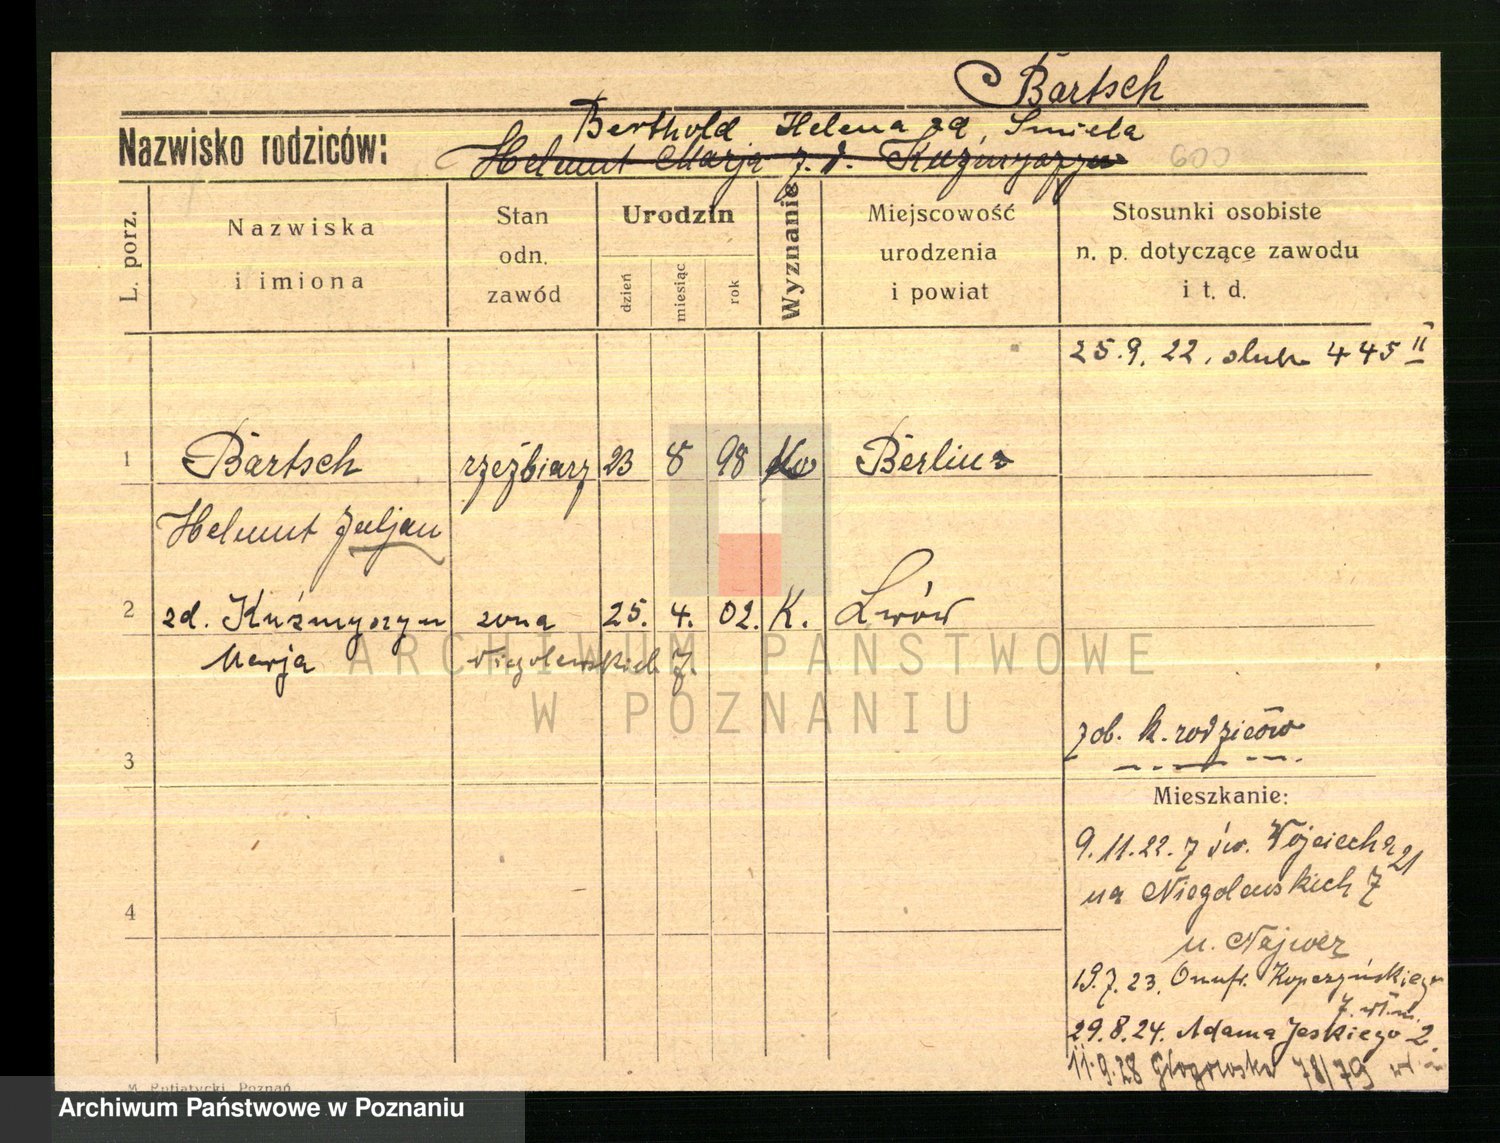 Bartsch
Nazwisko rodziców: Berthold Helena zd. Śmieta
Helmut Marja z. d.
600
L. porz.
Nazwiska i imiona
Stan odn. zawód
Urodzin
dzień miesiąc rok
Wyznanie
Miejscowość urodzenia i powiat
Stosunki osobiste n. p. dotyczące zawodu i t. d.
25. 9. 22. ślub 445 II
1 Bartsch rzeźbiarz 23 8 98 Berlin
Helmut Juljan
2 zd. Kuźmyszyn żona 25. 4. 02. K. Lwów
Marja Niegolewskich 7.
ARCHIWUM PAŃSTWOWE
W POZNANIU
zob. k. rodziców
3
Mieszkanie:
9. 11. 22. z św. Wojciecha 21
na Niegolewskich 7
4
u. Najwer
19. 7. 23. Onufr. Kopczyńskiego
7.
29. 8. 24. Adama Jeskiego 2.
11. 9. 28 Głogowska 78/79
M. Putiatycki, Poznań
Archiwum Państwowe w Poznaniu